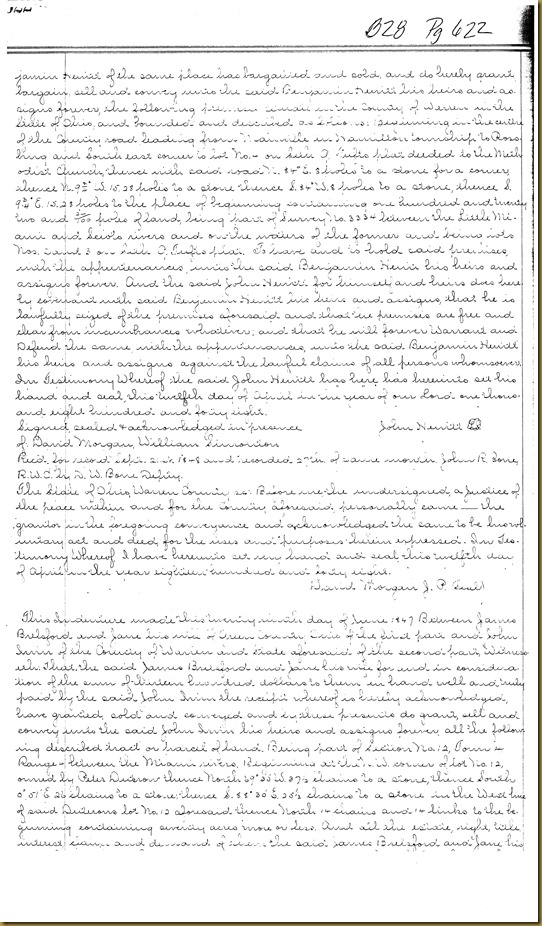 B28 Pg 622
jamin Hewitt of the same place has bargained and sold, and do hereby grant,
bargain, sell and convey unto the said Benjamin Hewitt his heirs and as-
signs forever, the following premises situate in the County of Warren in the
State of Ohio, and bounded and described as follows: Beginning in the centre
of the County road leading from in Hamilton township to Ross-
burg and South east corner to lot No. on Seth Tufts plat deeded to the Meth-
odist Church, thence with said road N. 84° E. 8 poles to a stone for a corner,
thence N. 9 W. 15.28 poles to a stone thence S. 84° W. 8 poles to a stone, thence S.
9 E. 15.28 poles to the place of beginning containing one hundred and twenty
two and poles of land, being part of Survey No. between the Little Mi-
ami and Scioto rivers and on the waters of the former and being lots
Nos. 2 and 3 on Seth Tufts plat. To have and to hold said premises,
with the appurtenances, unto the said Benjamin Hewitt his heirs and
assigns forever. And the said John Hewitt for himself and heirs does here-
by covenant with said Benjamin Hewitt his heirs and assigns, that he is
lawfully seized of the premises aforesaid and that the premises are free and
clear from incumbrances whatever; and that he will forever Warrant and
Defend the same with the appurtenances, unto the said Benjamin Hewitt
his heirs and assigns against the lawful claims of all persons whomsoever.
In Testimony Whereof the said John Hewitt has here has hereunto set his
hand and seal, this twelfth day of April in in year of our Lord one thous-
and eight hundred and forty eight.
Signed sealed & acknowledged in presence John Hewitt
of David Morgan, William
Rec'd for record Sept. 21st and recorded 27th of same month John R.
R.W.C. by W. Bone Deputy.
The State of Ohio, Warren County ss: Before me the undersigned, a Justice of
the peace within and for the County aforesaid personally came the
grantor in the foregoing conveyance and acknowledged the same to be his vol-
untary act and deed for the uses and purposes therein expressed. In Tes-
timony Whereof I have hereunto set my hand and seal this twelfth day
of April in the year eighteen hundred and forty eight.
David Morgan J. P. Seal
This Indenture made this twenty ninth day of June 1847 Between James
Brelsford and Jane his wife of Green County, Ohio of the first part and John
Irvin of the County of Warren and State aforesaid of the second part, Witness-
eth That, the said James Brelsford and Jane his wife for and in considera-
tion of the sum of hundred dollars to them in hand well and truly
paid by the said John Irvin the receipt whereof is hereby acknowledged,
have granted, sold and conveyed and by these presents do grant, sell and
convey unto the said John Irvin his heirs and assigns forever, all the follow-
ing described tract or parcel of land. Being part of Section No. 12, Town 4
Range between the Miami rivers, Beginning at the N.W. corner of lot No. 12,
owned by Peter thence North 89° W. chains to a stone, thence South
0° 51' E. 26 chains to a stone, thence S. 88° 30' E. chains to a stone in the West line
of said lot No. 12 aforesaid thence North 14 chains and 14 links to the be-
ginning containing seventy acres more or less. And all the estate, right, title,
interest claim and demand of them the said James Brelsford and Jane his